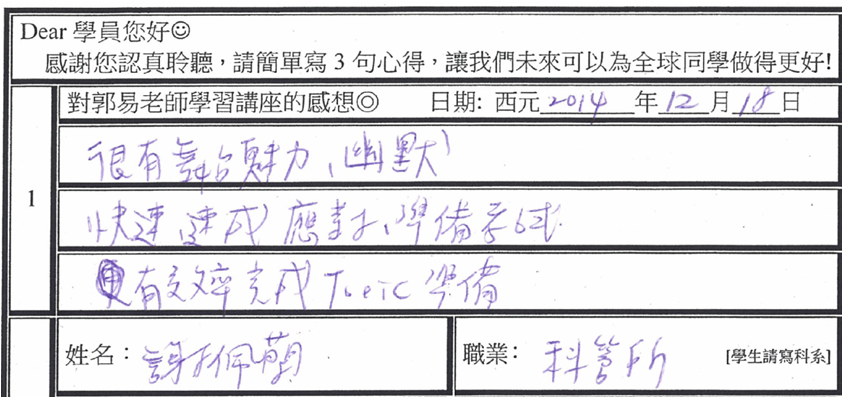 Dear 學員您好☺
感謝您認真聆聽，請簡單寫 3 句心得，讓我們未來可以為全球同學做得更好!
1
對郭易老師學習講座的感想◎ 日期: 西元 2014 年 12 月 18 日
很有舞台魅力、幽默
快速、速成、應對、準備考試
更有效率完成 Toeic 準備
姓名：謝佩萌 職業：科管所 [學生請寫科系]